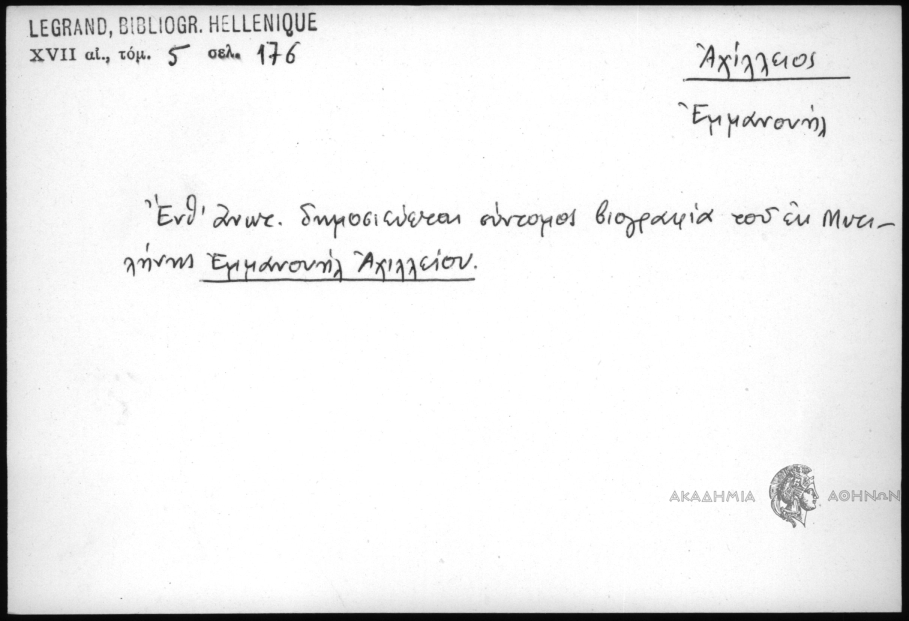 LEGRAND, BIBLIOGR. HELLENIQUE
XVII αἰ., τόμ. 5 σελ. 176
Ἀχίλλειος
Ἐμμανουήλ
Ἐνθ' ἄνωτ. δημοσιεύεται σύντομος βιογραφία τοῦ ἐκ Μυτι-
λήνης Ἐμμανουήλ Ἀχιλλείου.
ΑΚΑΔΗΜΙΑ ΑΘΗΝΩΝ